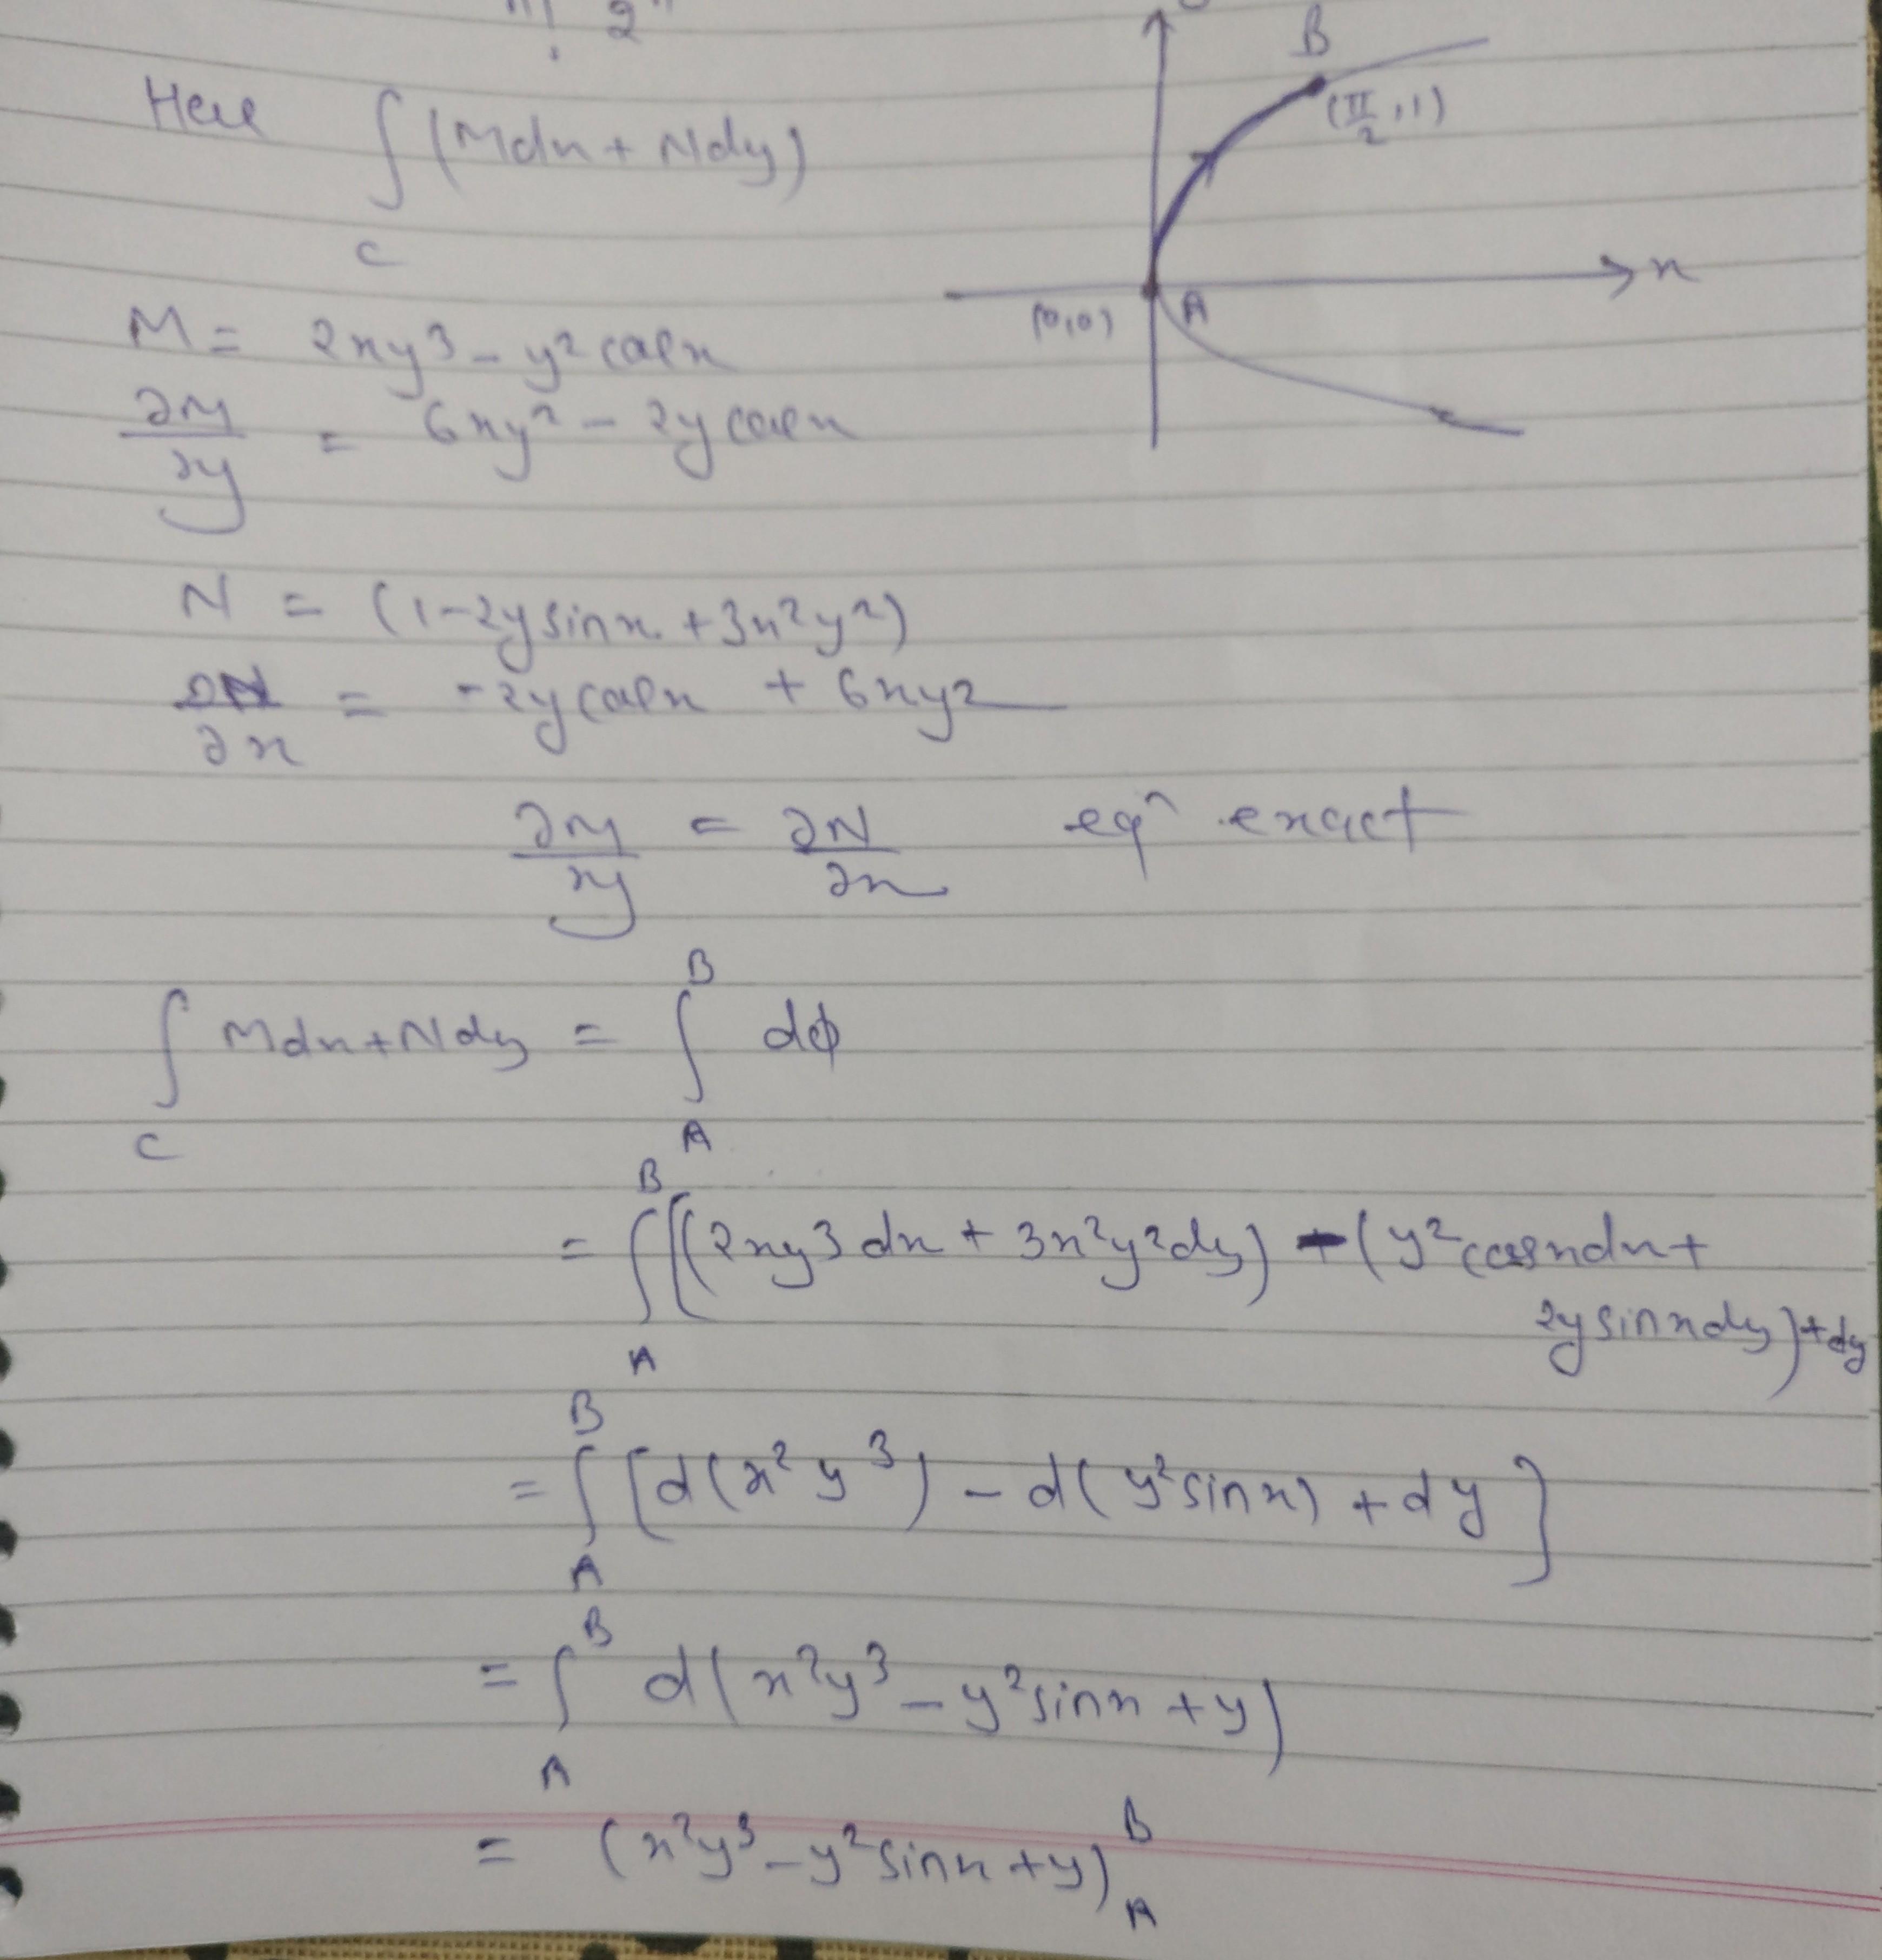 Here ∫ (Mdx + Ndy)
C
B
(π/2, 1)
x
(0,0) A
M = 2xy³ - y² cosx
∂M/∂y = 6xy² - 2y cosx
N = (1-2y sinx + 3x²y²)
∂N/∂x = -2y cosx + 6xy²
∂M/∂y = ∂N/∂x eqⁿ exact
B
∫ Mdx + Ndy = ∫ dϕ
C A
B
= ∫ [(2xy³ dx + 3x²y² dy) - (y² cosx dx +
2y sinx dy) + dy
A
B
= ∫ [d(x² y³) - d(y² sinx) + dy]
A
B
= ∫ d(x²y³ - y² sinx + y)
A
= (x²y³ - y² sinx + y) B
A